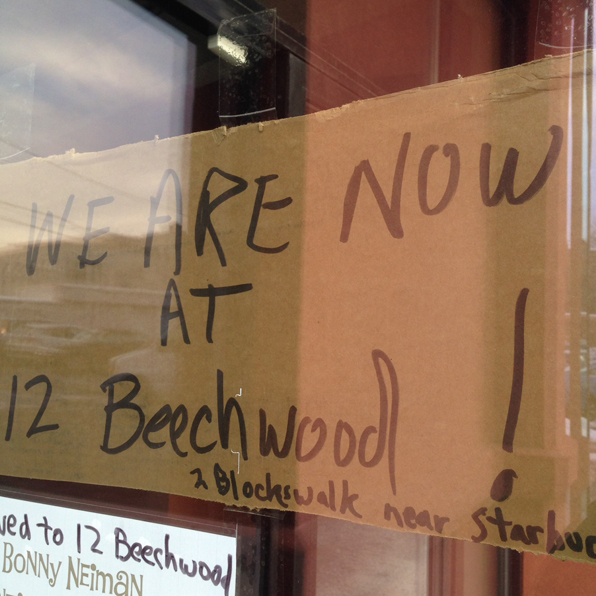 WE ARE NOW
AT
12 Beechwood !
2 Blockswalk near Starbuc
ved to 12 Beechwood
BONNY NEIMAN